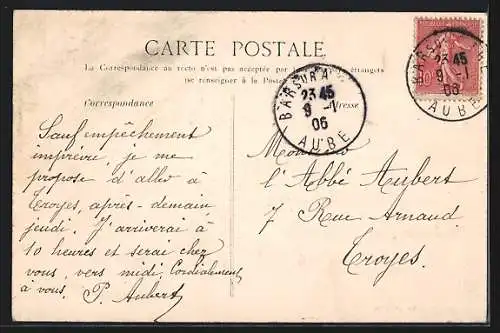 CARTE POSTALE
La Correspondance au recto n'est pas acceptée par étrangers
se renseigner à la Poste
Correspondance
Adresse
BAR SUR AUBE
23 45
9 -1
06
AUBE
23 45
9 -1
06
AUBE
Sauf empêchement
imprévu, je me
propose d'aller à
Troyes, après-demain
jeudi. J'arriverai à
10 heures et serai chez
vous, vers midi. Cordialement
à vous. P. Aubert
Monsieur
l'Abbé Aubert
7 Rue Arnaud
Troyes.